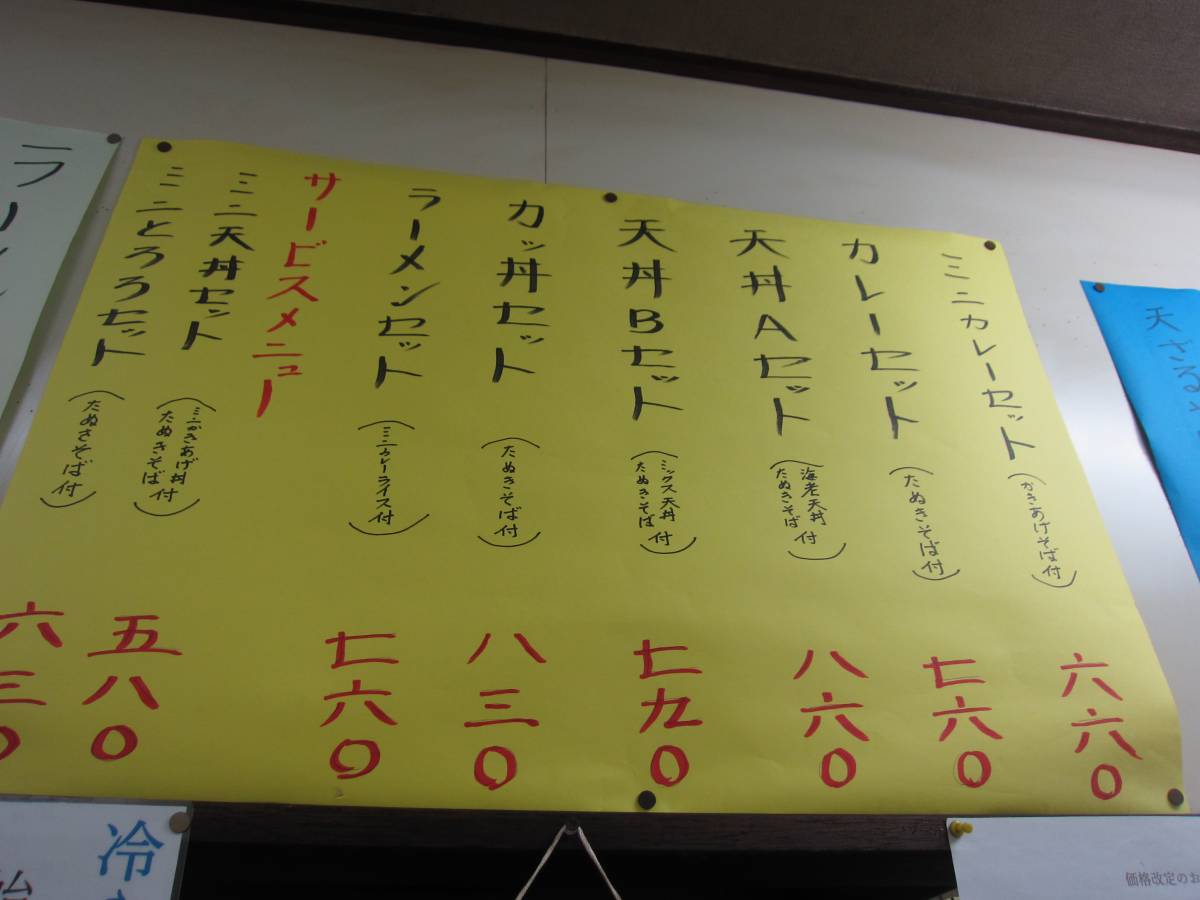 ミニカレーセット (かきあげそば付) 六六0
カレーセット (たぬきそば付) 七六0
天丼Aセット (海老天丼 たぬきそば 付) 八六0
天丼Bセット (ミックス天丼 たぬきそば 付) 七九0
カツ丼セット (たぬきそば付) 八三0
ラーメンセット (ミニカレーライス付) 七六0
サービスメニュー
ミニ天丼セット (ミニかきあげ丼 たぬきそば 付) 五八0
ミニとろろセット (たぬきそば付) 六三0
天ざる
冷
価格改定のお